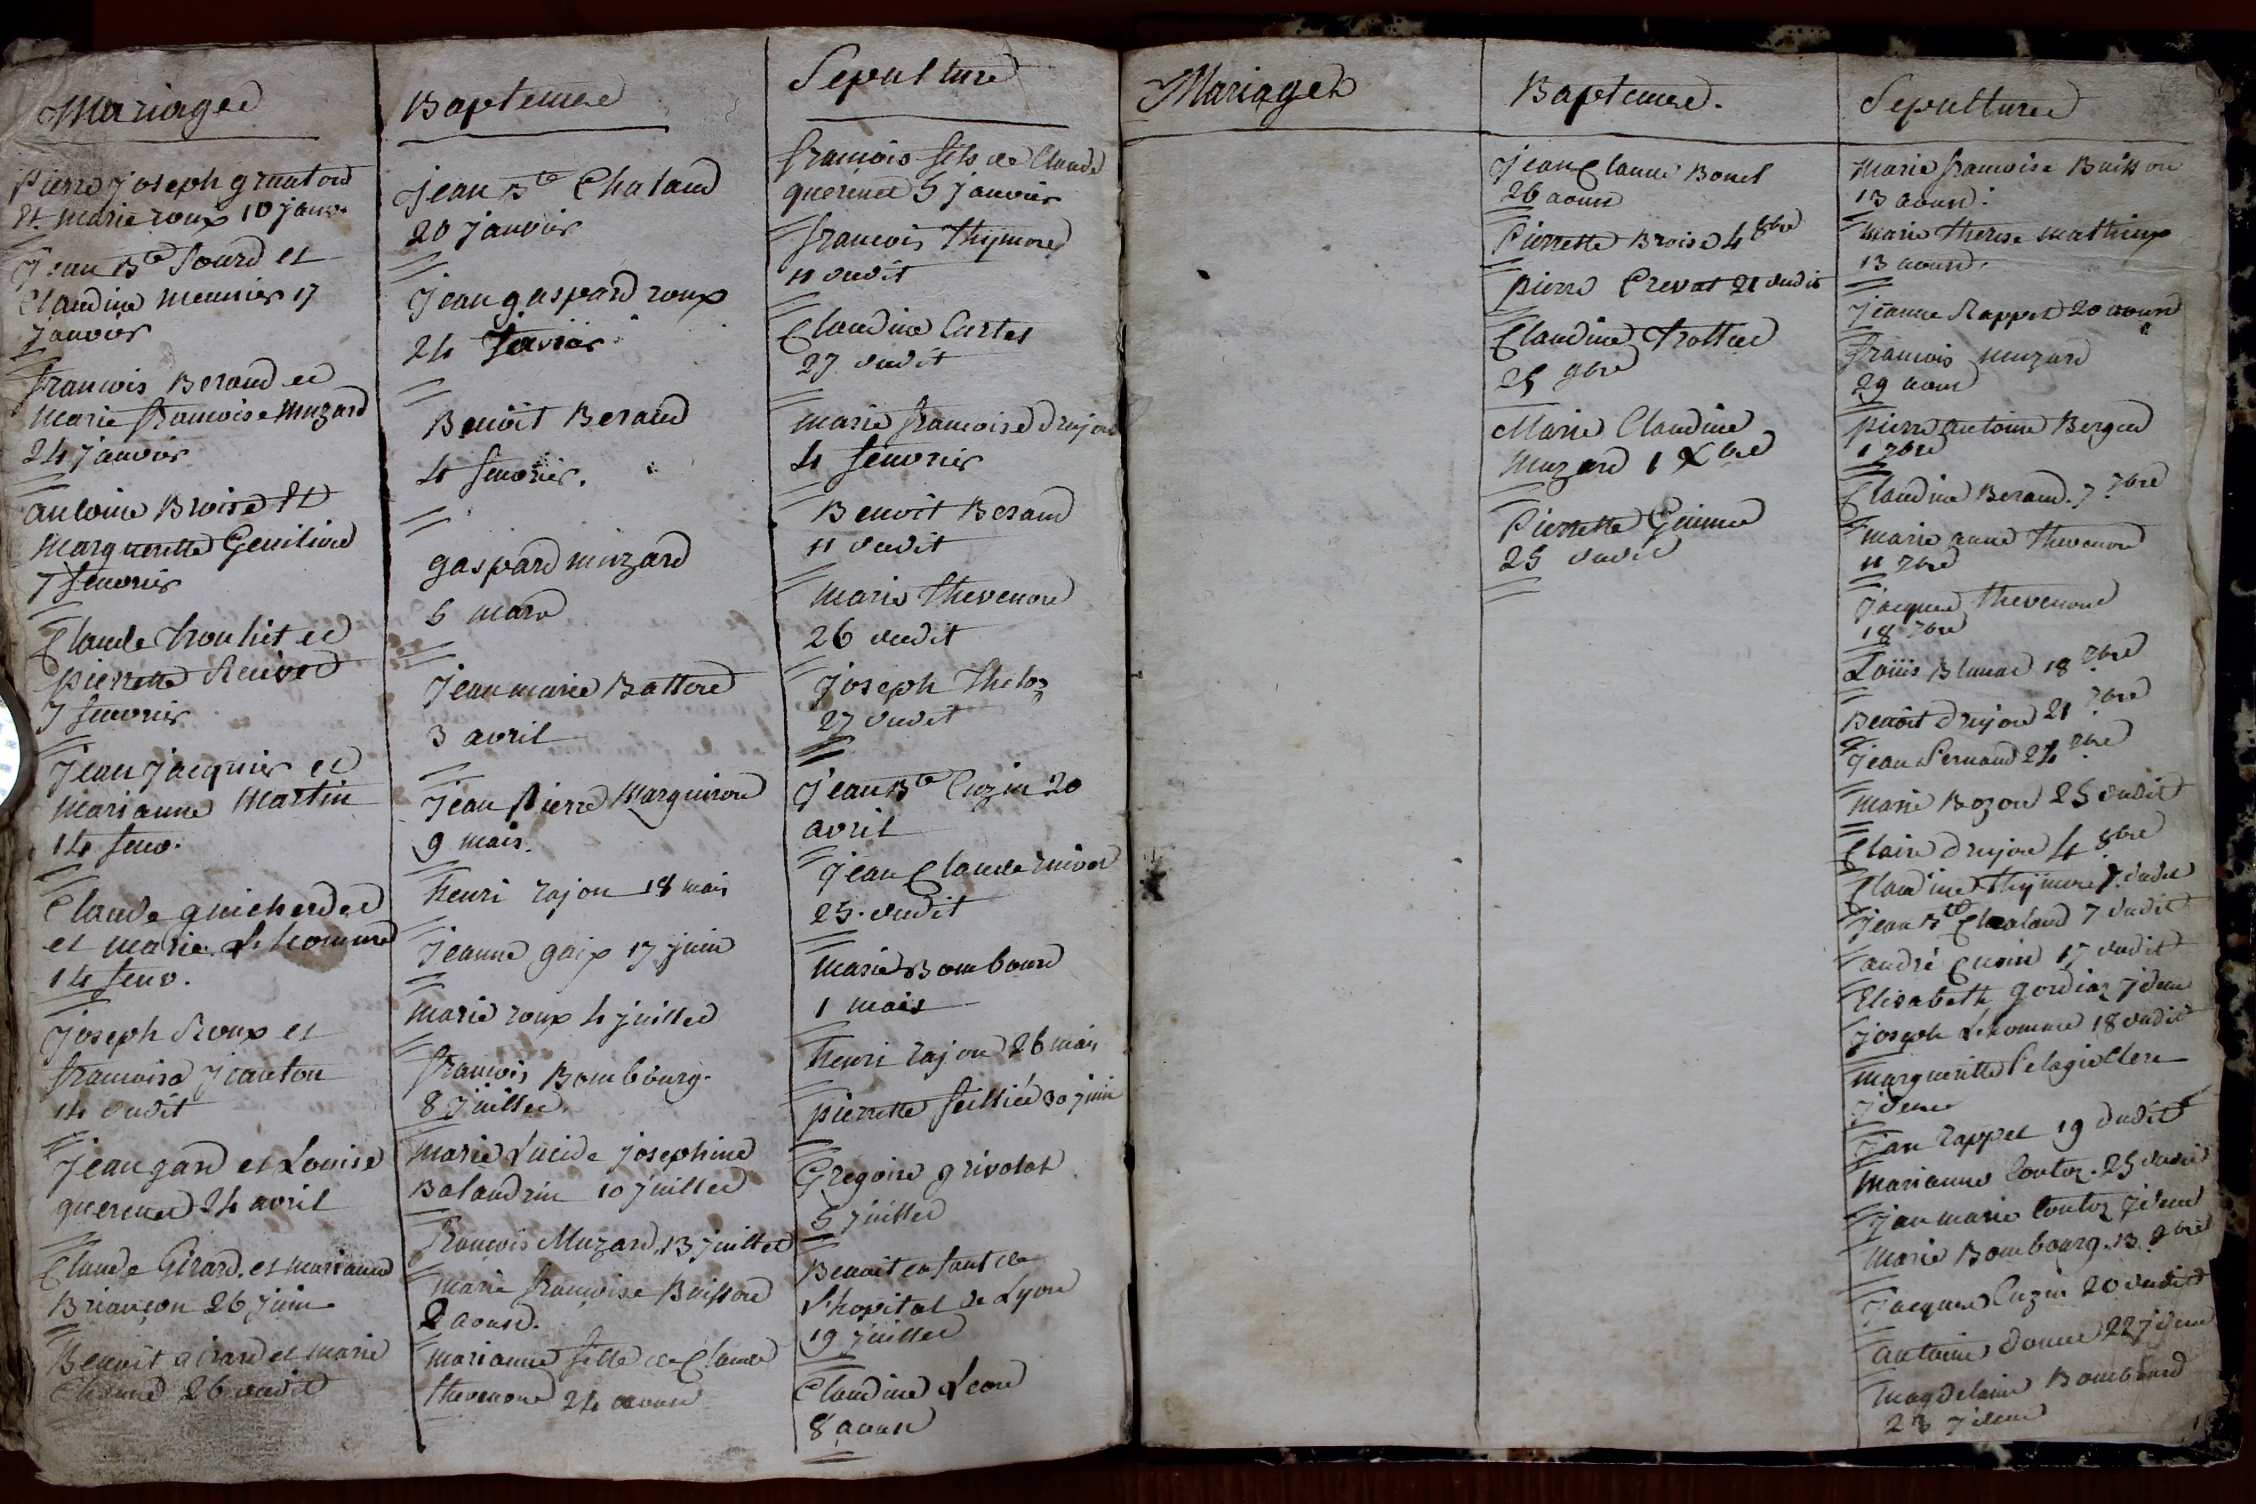 Mariages
Pierre Joseph
et marie roux 10 janv.
Jean Bte Sourd et
Claudine meunier 17
janvier
francois Beraud et
marie francoise Muzard
24 janvier
antoine Broise Et
Margueritte
7 fevrier
Claude trouliet et
pierrette
7 fevrier
Jean Jacquier et
Marianne Martin
14 fevr.
Claude guicherd
et marie Lhomme
14 fevr.
Joseph Roux et
francoise Jeanton
14 dudit
Jean gard et Louise
querenet 24 avril
Claude Girard et marianne
Briançon 26 juin
Benoit girard et marie
26 dudit
Baptemes
Jean Bte Chaland
20 janvier
Jean gaspard roux
24 Janvier
Benoît Beraud
4 fevrier.
gaspard muzard
5 mars
Jean marie Battou
3 avril
Jean pierre Marguiron
9 mais.
henri rajon 18 mais
Jeanne gaix 17 juin
marie roux 4 juillet
francois Bombourg.
8 Juillet
Marie Lucide josephine
Balandrin 10 juillet
françois Muzard, 13 juillet
marie françoise Buisson
2 aoust.
marianne fille de Claude
thevenon 24 aoust
Sepultures
francois fils de Claude
querenet 5 janvier
francois Thymon
11 dudit
Claudine Curtet
27 dudit
marie francoise drujon
4 fevrier
Benoit Beraud
11 dudit
marie thevenon
26 dudit
Joseph Theloz
27 dudit
Jean Bte Cuzin 20
avril
Jean Claude
25. dudit
Marie Bombourd
1 mais
henri rajon 26 mais
pierrette 30 juin
Gregoire grivolat
5 juillet
Benoit enfant de
l'hopital de Lyon
19 juillet
Claudine Leon
8 aoust
Mariages
Baptemes.
Jean Claude Bonet
26 aoust
Pierrette Broise 4 8bre
pierre Crevat 21 dudit
Claudine trottier
25 9bre
Marie Claudine
Muzard 1 Xbre
Pierrette
25 dudit
Sepultures
Marie francoise Buisson
13 aoust.
Marie therese mathieux
13 aoust.
Jeanne Rappet 20 aoust
francois muzard
29 aoust
pierre antoine Berger
1 7bre
Claudine Beraud. 7 7bre
marie anne thevenon
11 7bre
Jacques thevenon
18 7bre
Loüis Blanc 18 7bre
Benoît drujon 21 7bre
Jean 24 7bre
Marie Bozon 25 dudit
Claire drujon 4 8bre
Claudine thymon 7. dudit
Jean Bte Chaland 7 dudit
andré Cusin 17 dudit
Elisabeth gordiaz idem
joseph Lhomme 18 dudit
Margueritte
idem
Jean rappet 19 dudit
Marianne Coutoz. 25 dudit
Jean marie Coutoz idem
Marie Bombourg. 13 9bre
Jacques Cuzin 20 dudit
antoine 22 idem
Magdelaine Bombourd
23 idem